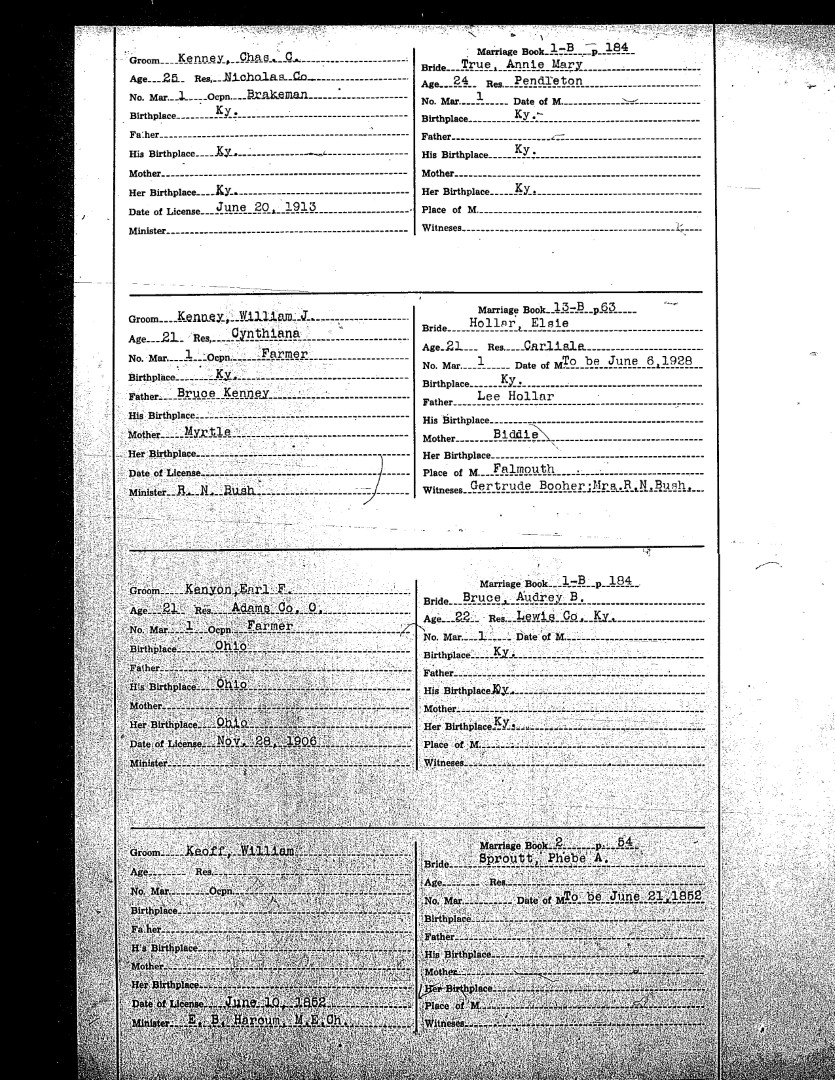 Groom Kenney, Chas. C.
Age 25 Res. Nicholas Co
No. Mar 1 Ocpn. Brakeman
Birthplace Ky.
Father
His Birthplace Ky.
Mother
Her Birthplace Ky.
Date of License June 20, 1913
Minister
Marriage Book 1-B p 184
Bride True, Annie Mary
Age 24 Res Pendleton
No. Mar. 1 Date of M.
Birthplace Ky.
Father
His Birthplace Ky.
Mother
Her Birthplace Ky.
Place of M.
Witneses
Groom Kenney, William J.
Age 21 Res. Cynthiana
No. Mar. 1 Ocpn. Farmer
Birthplace Ky.
Father Bruce Kenney
His Birthplace
Mother Myrtle
Her Birthplace
Date of License
Minister R. N. Bush
Marriage Book 13-B p.63
Bride Hollar, Elsie
Age 21 Res. Carlisle
No. Mar. 1 Date of M To be June 6,1928
Birthplace Ky.
Father Lee Hollar
His Birthplace
Mother Biddie
Her Birthplace
Place of M. Falmouth
Witneses Gertrude Booher;Mrs.R.N.Bush.
Groom Kenyon,Earl F.
Age 21 Res. Adams Co. O.
No. Mar 1 Ocpn Farmer
Birthplace Ohio
Father
His Birthplace Ohio
Mother
Her Birthplace Ohio
Date of License Nov. 28, 1906
Minister
Marriage Book 1-B p. 184
Bride Bruce, Audrey B.
Age 22 Res. Lewis Co. Ky.
No. Mar. 1 Date of M.
Birthplace Ky.
Father
His Birthplace Ky.
Mother
Her Birthplace Ky.
Place of M.
Witneses
Groom Keoff, William
Age Res.
No. Mar. Ocpn.
Birthplace
Father
His Birthplace
Mother
Her Birthplace
Date of License June 10, 1852
Minister E. B. Harcum, M.E.Ch.
Marriage Book 2 p. 54
Bride Sproutt, Phebe A.
Age Res
No. Mar. Date of M To be June 21,1852
Birthplace
Father
His Birthplace
Mother
Her Birthplace
Place of M.
Witneses